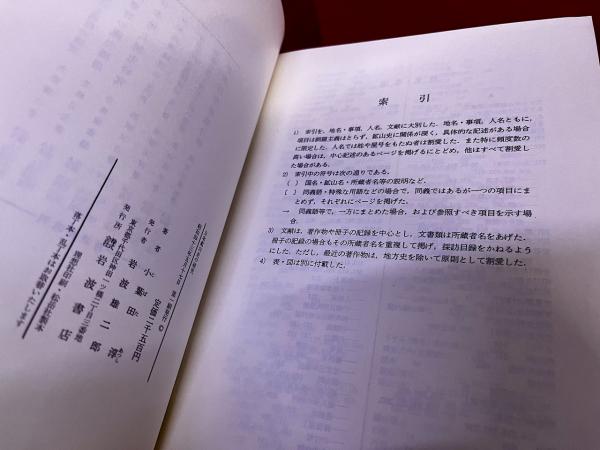 索引
1) 索引を,地名・事項,人名,文献に大別した.地名・事項,人名ともに,
項目は網羅主義はとらず,鉱山史に関係が深く,具体的な記述がある場合
に限定した.人名では姓や屋号をもたぬ者は割愛した.また特に頻度数の
高い場合は,中心記述のあるページを掲げるにとどめ,他はすべて割愛し
た場合がある.
2) 索引中の符号は次の通りである.
( ) 国名・鉱山名・所蔵者名等の説明など.
〔 〕 同義語・特殊な用語などの場合で,同義ではあるが一つの項目にま
とめず,それぞれにページを掲げた.
→ 同義語等で,一方にまとめた場合,および参照すべき項目を示す場
合.
3) 文献は,著作物や冊子の記録を中心とし,文書類は所蔵者名をあげた.
冊子の記録の場合もその所蔵者名を重複して掲げ,採訪目録をかねるよう
にした.ただし,最近の著作物は,地方史を除いて原則として割愛した.
4) 表・図は別に付載した.
定価二千五百円
著者 小葉田淳
発行者 岩波雄二郎
東京都千代田区神田一ツ橋二丁目三番地
発行所 岩波書店
理想社印刷・松岳社製本
落丁本・乱丁本はお取替いたします